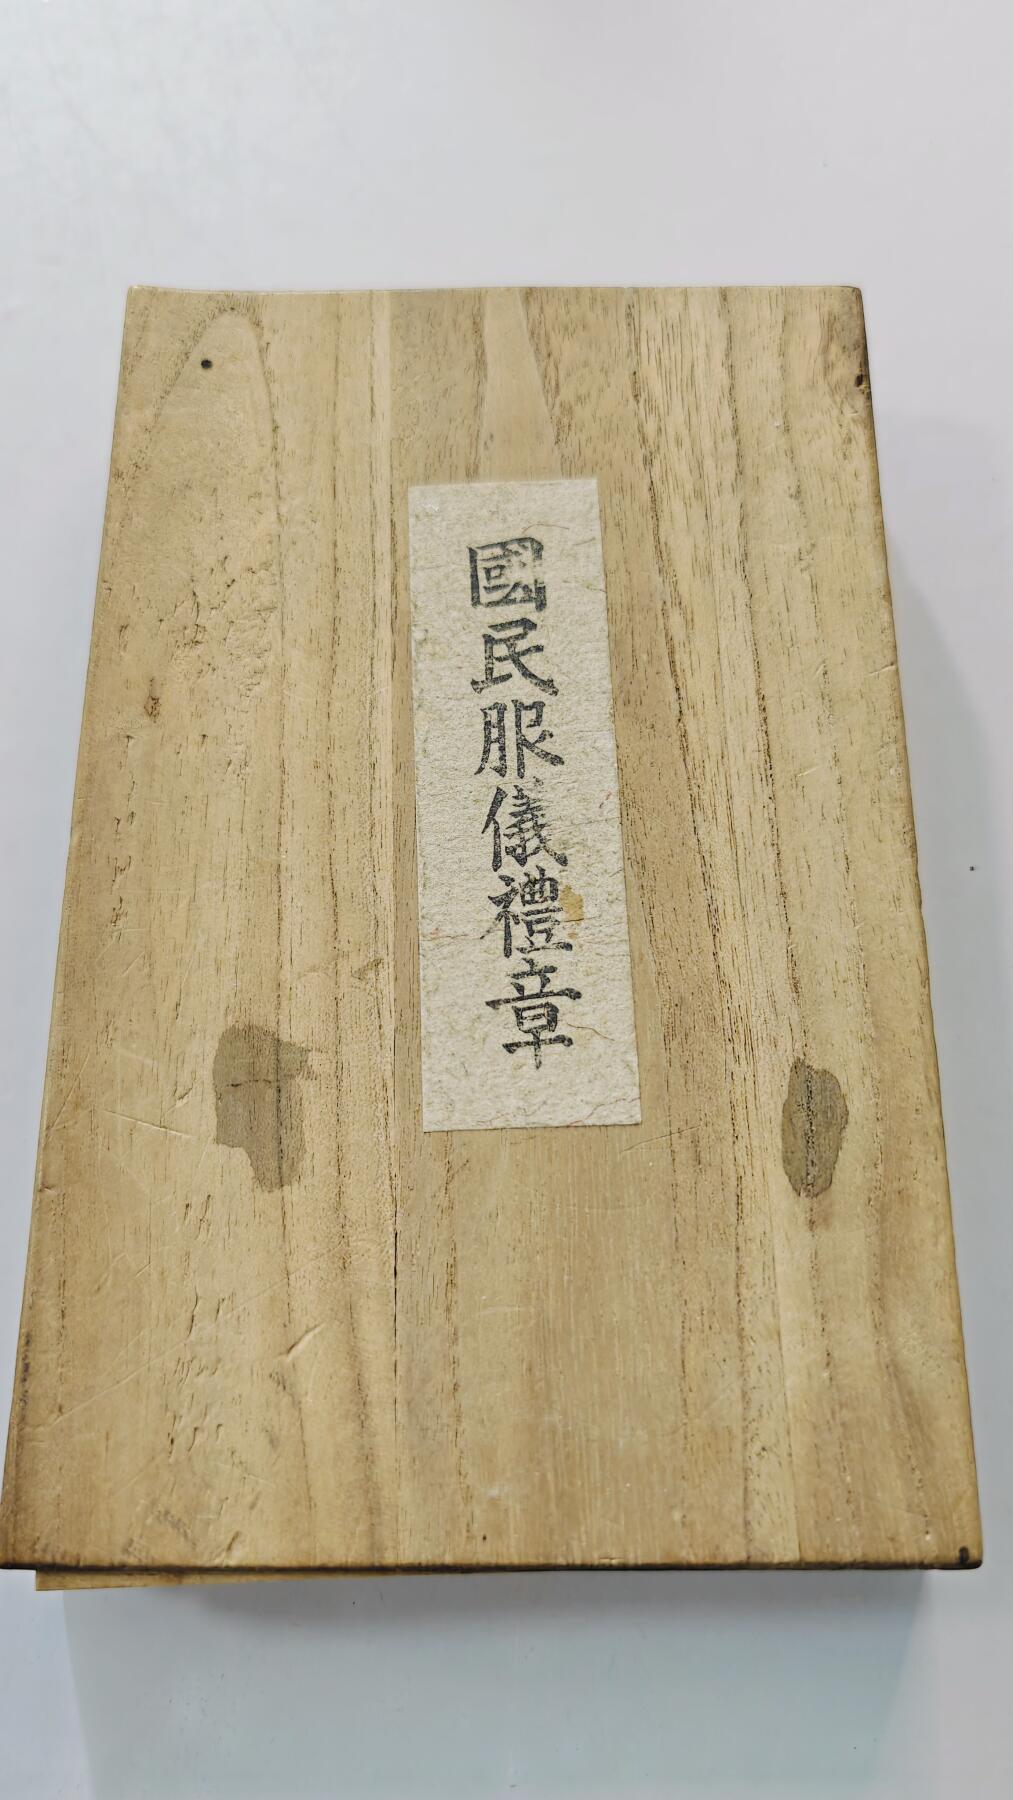 國民服儀禮章